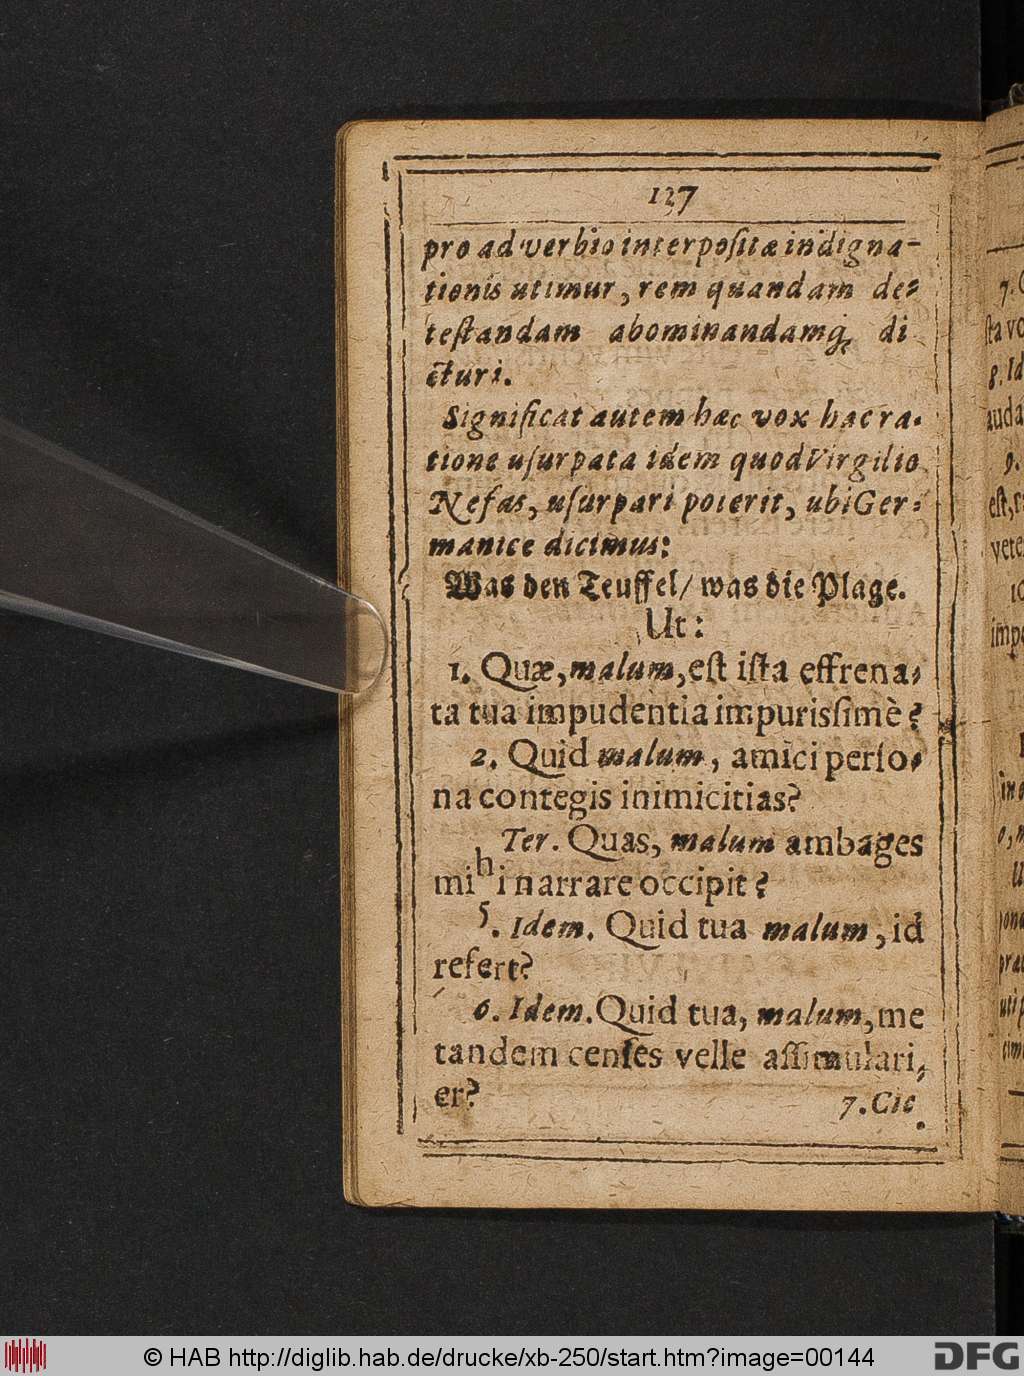 137
pro adverbio interpoſitæ indigna-
tionis utimur, rem quandam de-
teſtandam abominandamq; di
ƈturi.
Significat autem hæc vox hac ra-
tione uſurpata idem quod Virgilio
Nefas, uſurpari poterit, ubi Ger-
manice dicimus:
Was den Teuffel/ was die Plage.
Ut:
1. Quæ, malum, eſt iſta effrena-
ta tua impudentia impurisſimè?
2. Quid malum, amici perſo-
na contegis inimicitias?
Ter. Quas, malum ambages
mihi narrare occipit?
5. Idem. Quid tua malum, id
refert?
6. Idem. Quid tua, malum, me
tandem cenſes velle aſſimulari-
er?
7. Cic
7. C
ſta vo
8. Id
auda
9.
eſt, r
vete
10
impo
© HAB http://diglib.hab.de/drucke/xb-250/start.htm?image=00144
DFG